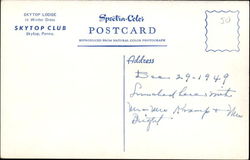 SKYTOP LODGE
in Winter Dress
SKYTOP CLUB
Skytop, Penna.
Spectra-Color
POSTCARD
REPRODUCED FROM NATURAL COLOR PHOTOGRAPH
Address
Dec 29-1949
Lunched here with
Mr & Mrs & Mrs